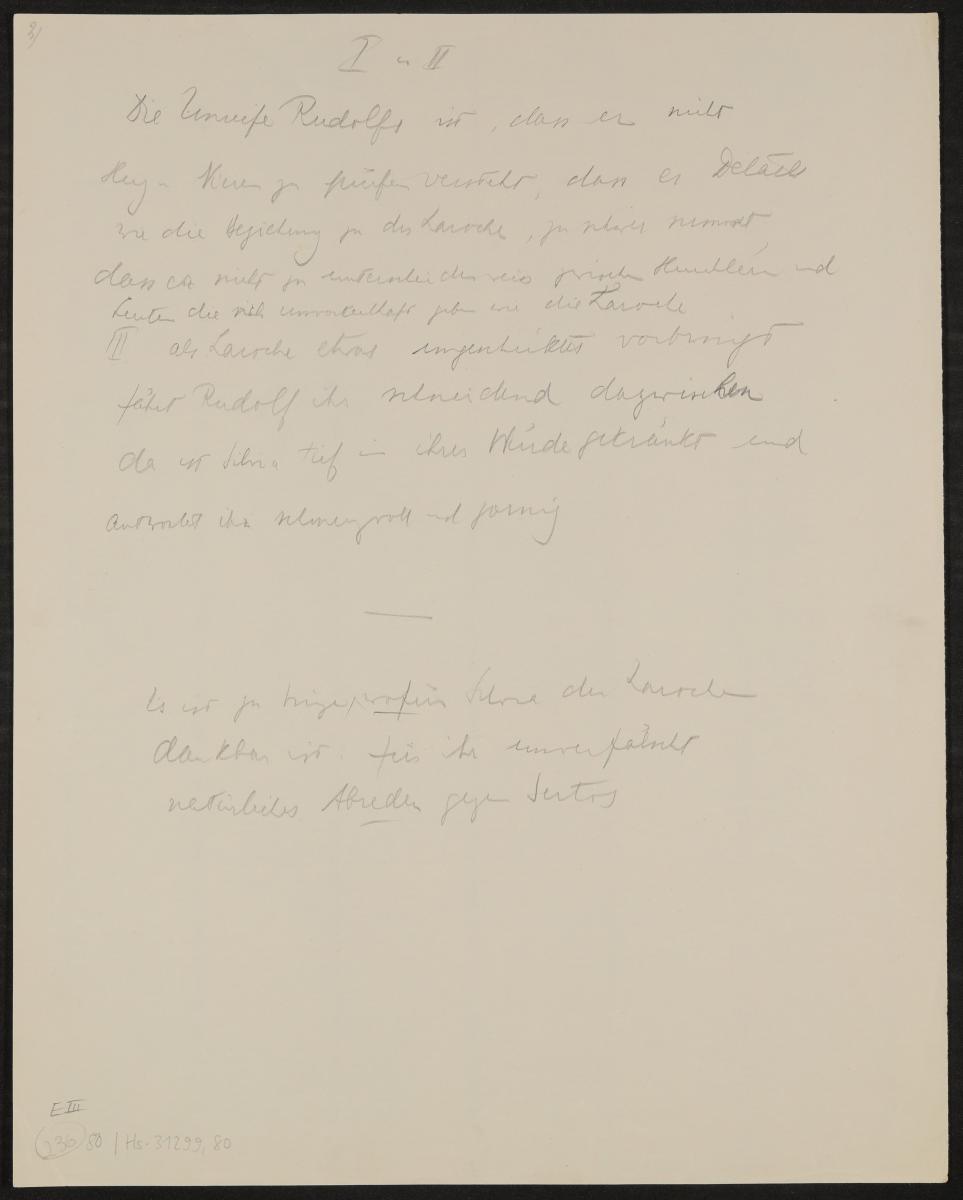 I u II
Die Unreife Rudolfs ist, dass er nicht
Herz u Nieren zu prüfen versteht, dass er Details
wie die Beziehung zu der Laroche, zu schwer nimmt,
dass er nicht zu unterscheiden weiss zwischen Heuchlern und
Leuten die sich unvorteilhaft geben wie die Laroche
III als Laroche etwas ungeschicktes vorbringt
fährt Rudolf ihr schneidend dazwischen
da ist Silvia tief in ihrer Würde gekränkt und
antwortet ihm schmerzvoll und zornig
Es ist zu zeigen, wofür Silvia der Laroche
dankbar ist: für ihr unverfälscht
natürliches Abreden gegen
E III
136 80 | Hs-31299,80